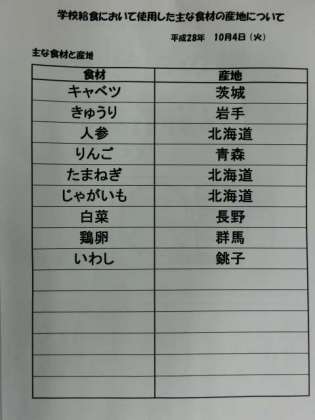 学校給食において使用した主な食材の産地について
平成28年 10月4日（火）
主な食材と産地
食材 産地
キャベツ 茨城
きゅうり 岩手
人参 北海道
りんご 青森
たまねぎ 北海道
じゃがいも 北海道
白菜 長野
鶏卵 群馬
いわし 銚子